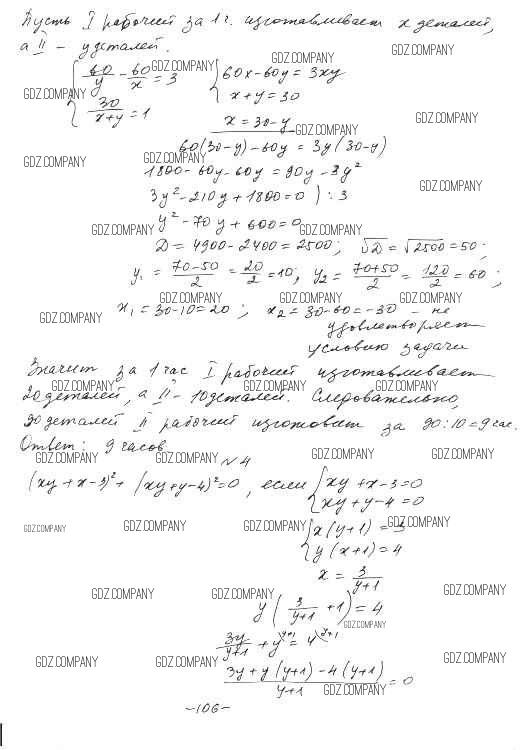 Пусть I рабочий за 1 г. изготавливает x деталей,
а II – y деталей.
{ 60/y - 60/x = 3 { 60x - 60y = 3xy
30/(x+y) = 1 x + y = 30
x = 30 - y
60(30-y) - 60y = 3y(30-y)
1800 - 60y - 60y = 90y - 3y²
3y² - 210y + 1800 = 0 ) : 3
y² - 70y + 600 = 0
D = 4900 - 2400 = 2500; √D = √2500 = 50;
y₁ = (70-50)/2 = 20/2 = 10; y₂ = (70+50)/2 = 120/2 = 60;
x₁ = 30-10 = 20; x₂ = 30-60 = -30 – не
удовлетворяет
условию задачи
Значит за 1 час I рабочий изготавливает
20 деталей, а II – 10 деталей. Следовательно,
90 деталей II рабочий изготовит за 90:10 = 9 час.
Ответ: 9 часов
N4
(xy + x - 3)² + (xy + y - 4)² = 0, если { xy + x - 3 = 0
xy + y - 4 = 0
{ x(y+1) = 3
y(x+1) = 4
x = 3/(y+1)
y( 3/(y+1) + 1) = 4
3y/(y+1) + y^(y+1) = 4^(y+1)
(3y + y(y+1) - 4(y+1))/(y+1) = 0
-106-
GDZ.COMPANY